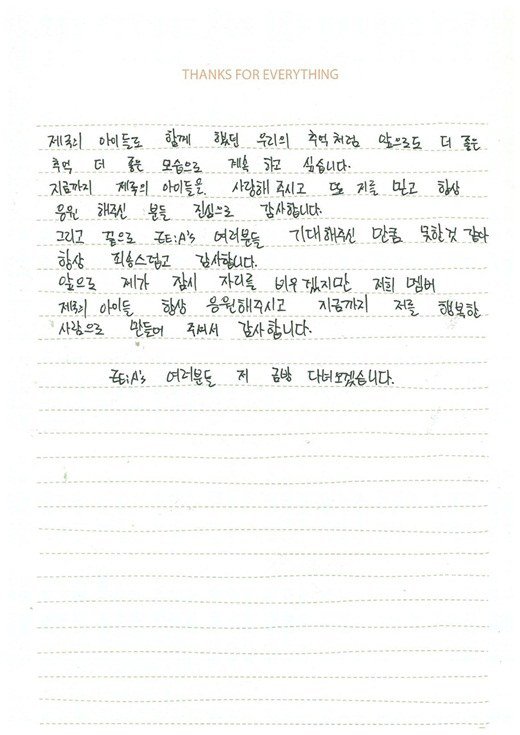 THANKS FOR EVERYTHING
제국의 아이들로 함께 했던 우리의 추억처럼 앞으로도 더 좋은
추억 더 좋은 모습으로 계속 하고 싶습니다.
지금까지 제국의 아이들을 사랑해 주시고 또 저를 믿고 항상
응원 해주신 분들 진심으로 감사합니다.
그리고 끝으로 ZE:A's 여러분들 기대해주신 만큼 못한것 같아
항상 죄송스럽고 감사합니다.
앞으로 제가 잠시 자리를 비우겠지만 저희 멤버
제국의 아이들 항상 응원해주시고 지금까지 저를 행복한
사람으로 만들어 주셔서 감사합니다.
ZE:A's 여러분들 저 금방 다녀오겠습니다.